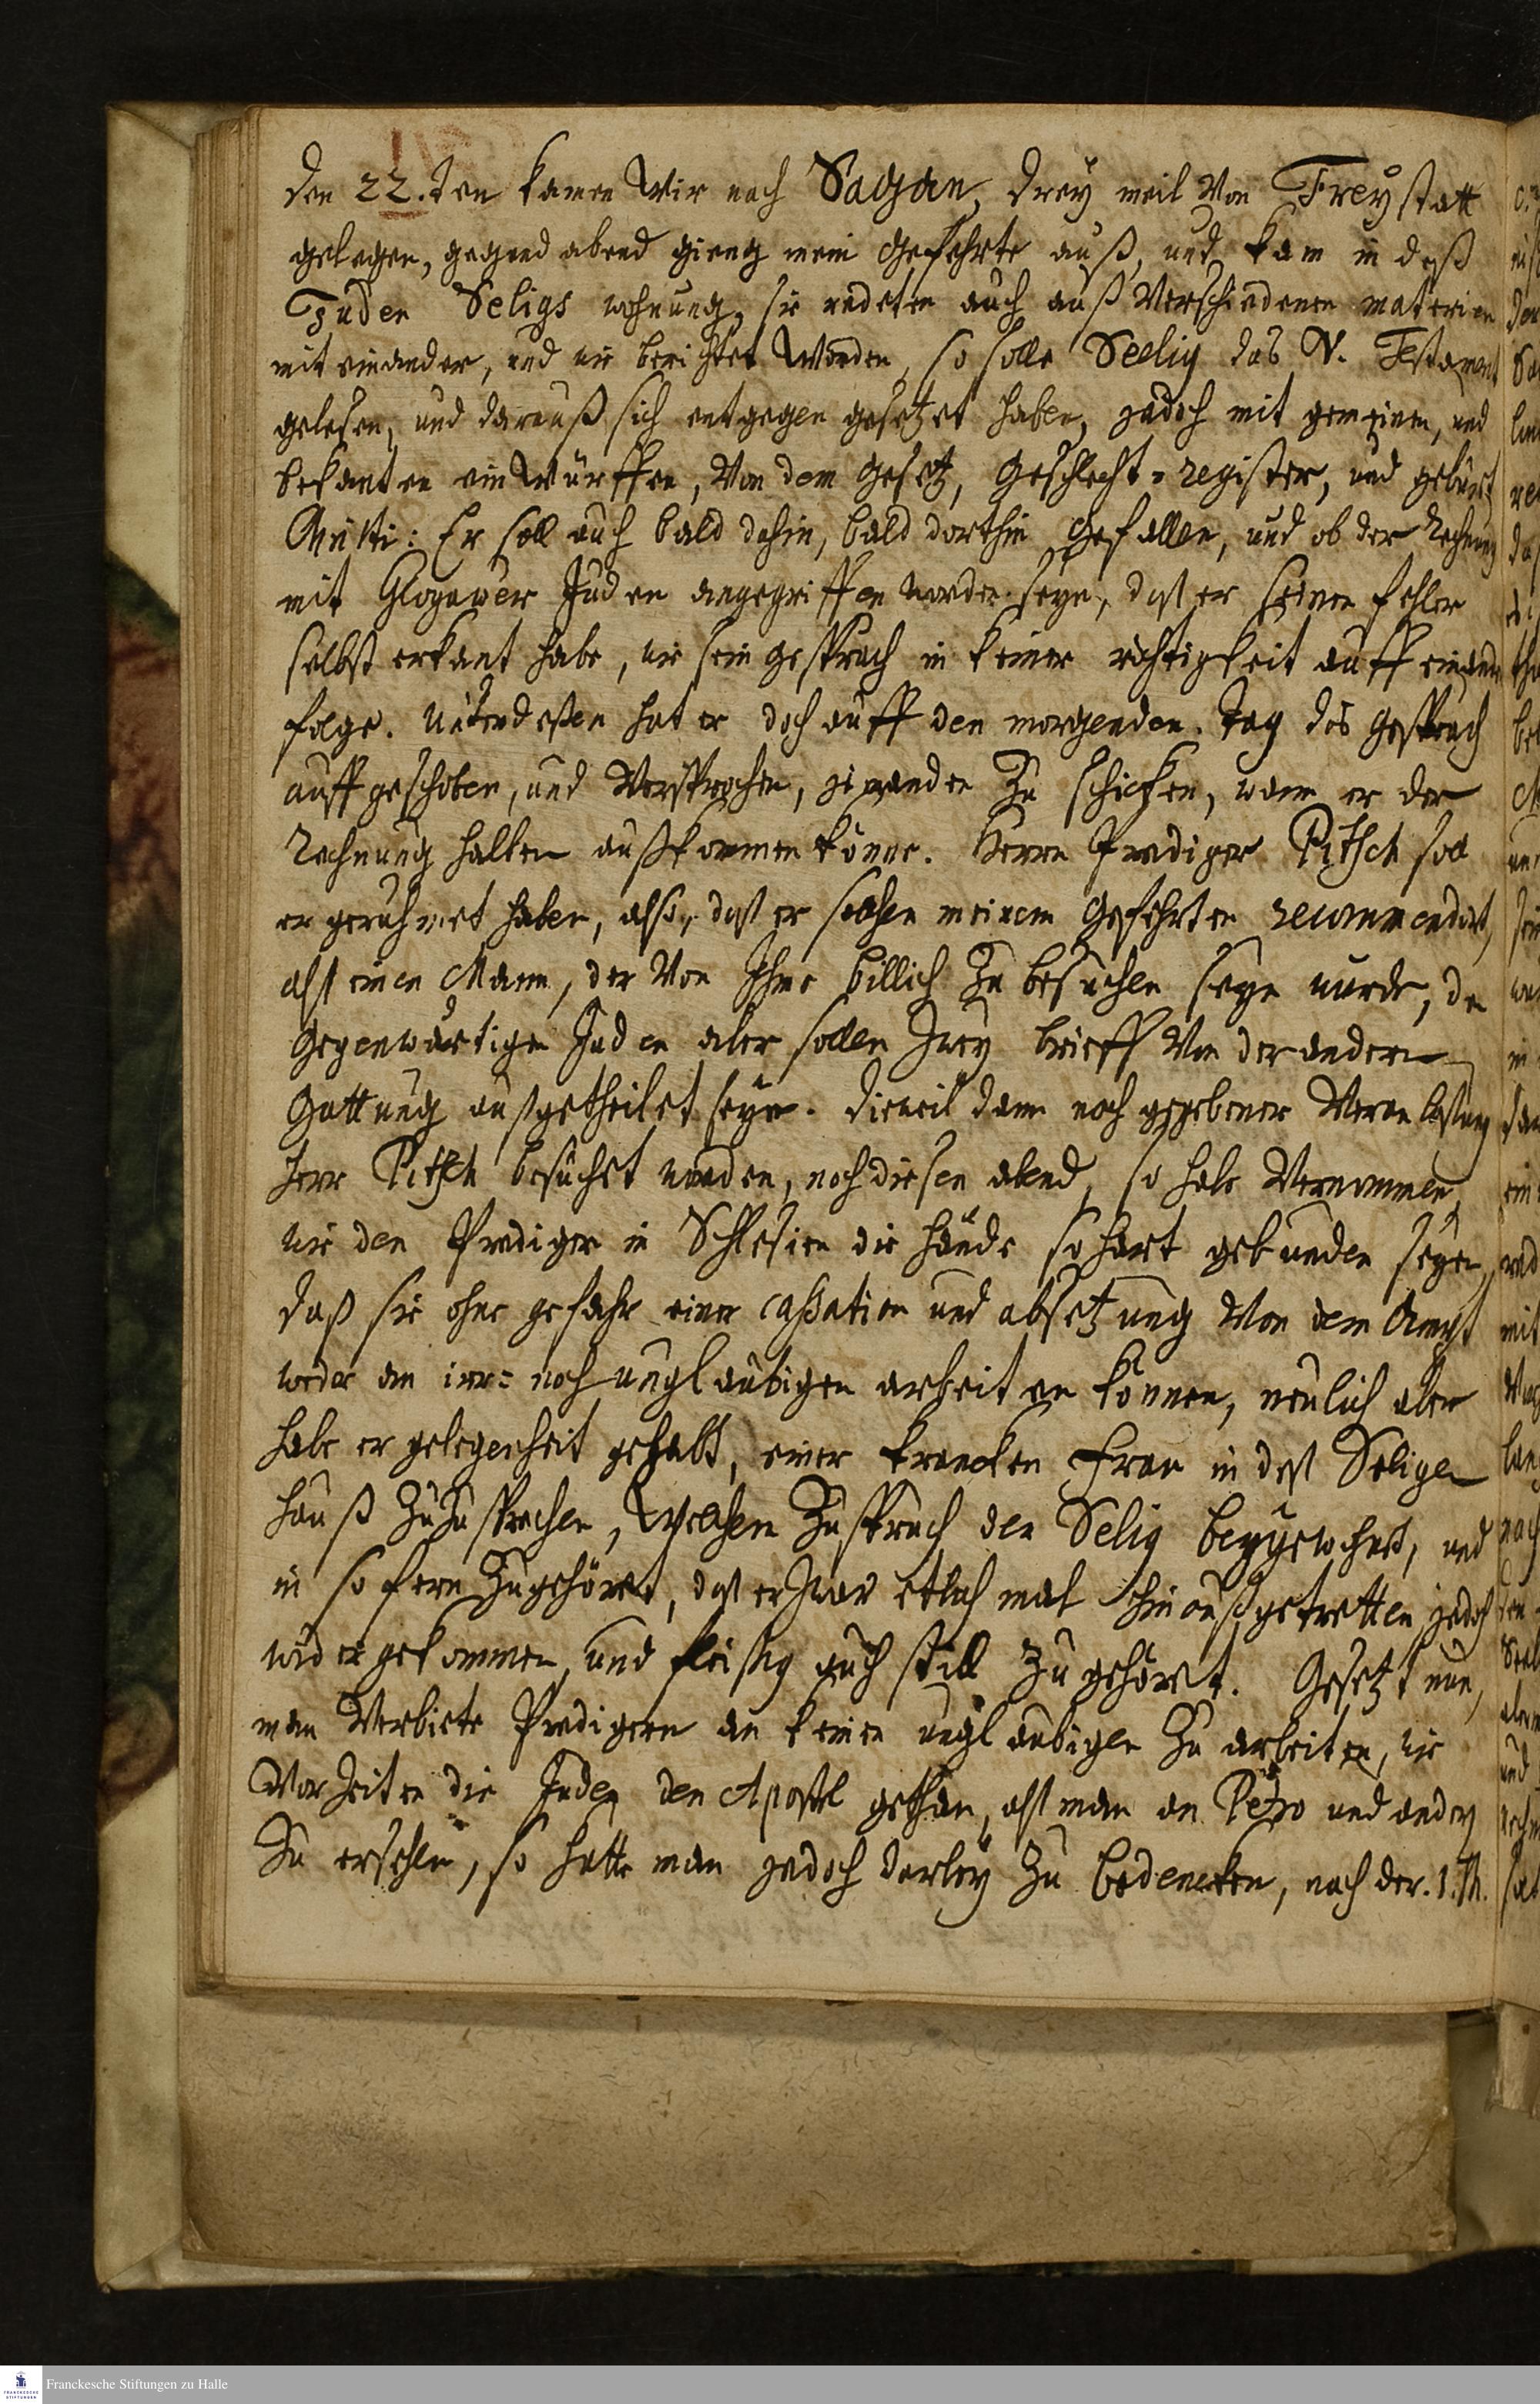 den 22.ten kamen wir nach Sagan, drey meil von Freystatt
gelegen, gegend abend gieng mein gefehrte auß, und kam in deß
Juden Seligs wohnung, sie redeten auch auß verschiedenen materien
mit einander, und wie berichtet worden, so solle Seelig das N. Testament
gelesen, und darauß sich entgegen gesetzet haben, jedoch mit gemeinen, und
bekanten einwürffen, von dem gesetz, geschlecht-register, und geburt
Christi: Er soll auch bald dahin, bald dorthin gefallen, und ob der rechnung
mit Glogauer Juden angegriffen worden seyn, daß er seinen fehler
selbst erkant habe, wie sein gespräch in keiner richtigkeit auff einander
folge. Unterdeßen hat er doch auff den morgenden tag das gespräch
auffgeschoben, und versprochen, jemanden zu schicken, wann er der
rechnung halben außkommen könne. Herrn Prediger Pitsch soll
er gerühmet haben, also, daß er solchen meinem gefehrten recommendirt,
alß einen Mann, der von Ihme billich zu besuchen seyn wurde, den
gegenwärtigen Juden aber sollen zwey brieff von der andern
Gattung außgetheilet seyn. dieweil dann nach gegebener veranlaßung
Herr Pitsch besuchet worden, noch diesen abend, so habe vernommen,
wie den Prediger in Schlesien die hände so hart gebunden seyen,
daß sie ohne gefahr einer cassation und absetzung von dem Ampt
weder an irr- noch unglaubigen arbeiten können, neulich aber
habe er gelegenheit gehabt, einer krancken Frau in deß Seligen
hauß zuzusprechen, welchem zuspruch der Selig beygewohnt, und
in so fern zugehöret, daß er zwar etlich mal hinaußgetretten jedoch
wider gekommen, und fleißig auch still zugehöret. Gesetzt nun,
man verbiete Predigern an keinen unglaubigen zu arbeiten, wie
vor zeiten die Juden den Apostel gethan, alß man an Petro und andern
zu ersehen, so hatte man jedoch darbey zu bedencken, nach der 1. Th.
Franckesche Stiftungen zu Halle